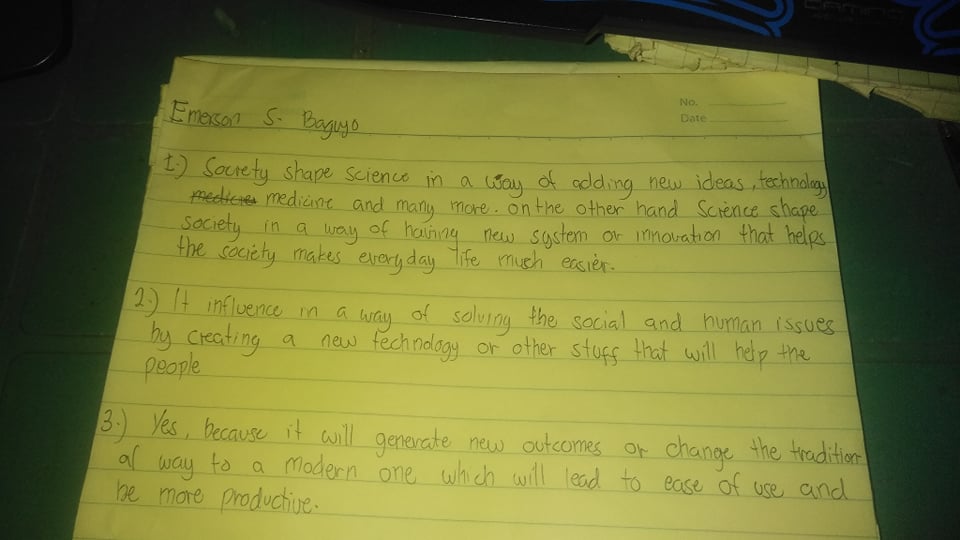 GAMING
No.
Date
Emerson S. Baguyo
1.) Society shape science in a way of adding new ideas, technology
medicine and many more. on the other hand Science shape
society in a way of having new system or innovation that helps
the society makes everyday life much easier.
2.) It influence in a way of solving the social and human issues
by creating a new technology or other stuff that will help the
people
3.) Yes, because it will generate new outcomes or change the tradition
al way to a modern one which will lead to ease of use and
be more productive.